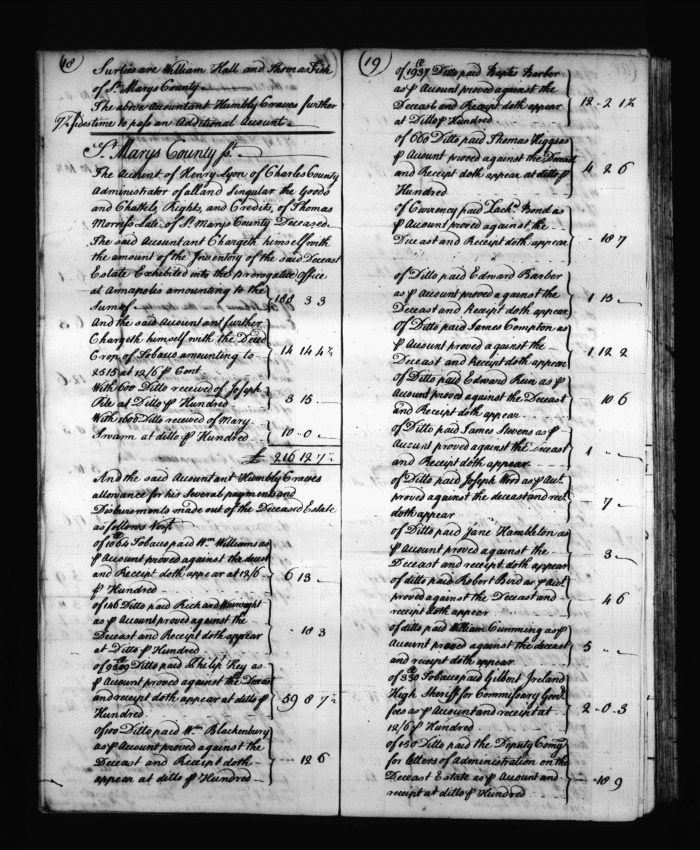 18
Surties are William Hall and Thomas Fish
of St. Marys County
The above Accountant Humbly Craves further
time to pass an Additional Account
St. Marys County ss.
The Account of Henry Lyon of Charles County
Administrator of all and Singular the Goods
and Chattels, Rights, and Credits, of Thomas
Morriss Late of St. Marys County Deceased
The said Accountant Chargeth himself with
the amount of the Inventory of the said Deceast
Estate Exhibited into the Prerogative Office
at Annapolis amounting to the
Sum of 188 3 3
And the said Accountant further
Chargeth himself with the Deced
Crop of Tobacco amounting to
2515 at 12/6 ⅌ Cent 14 14 4½
With 600 Ditto received of Joseph
Pile at Ditto ⅌ Hundred 3 15 -
With 1600 Ditto received of Mary
Swann at ditto ⅌ Hundred 10 - 0 -
£ 216 12 7½
And the said Accountant Humbly Craves
allowance for his Several payments and
Disbursments made out of the Deceased Estate
as follows Vizt
of 1064 Tobacco paid Wm. Williams as
⅌ Account proved against the deceast
and Receipt doth appear at 12/6
⅌ Hundred 6 13 -
of 146 Ditto paid Richard Wainwright
as ⅌ Account proved against the
Deceast and Receipt doth appear
at Ditto ⅌ Hundred - 18 3
of 9509 Ditto paid Philip Key as
⅌ Account proved against the Deceast
and receipt doth appear at ditto ⅌
Hundred 59 8 7½
of 100 Ditto paid Wm. Blackenbury
as ⅌ Account proved against the
Deceast and Receipt doth
appear at ditto ⅌ Hundred - 12 6
19
of 1937 Ditto paid Baptis Barber
as ⅌ Account proved against the
Deceast and Receipt doth appear
at Ditto ⅌ Hundred 12 - 2 1½
of 660 Ditto paid Thomas Higgs as
⅌ Account proved against the Deceast
and Receipt doth appear at ditto ⅌
Hundred 4 2 6
of Currency paid Zachy. Bond as
⅌ Account proved against the
Deceast and Receipt doth appear - 18 7
of Ditto paid Edward Barber
as ⅌ Account proved against the
Deceast and Receipt doth appear 1 13 -
of Ditto paid James Compton as
⅌ Account proved against the
Deceast and Receipt doth appear 1 12 2
of Ditto paid Edward as ⅌
Account proved against the Deceast
and Receipt doth appear 10 6
of Ditto paid James Stevens as ⅌
Account proved against the deceast
and Receipt doth appear 1 - -
of Ditto paid Joseph Wood as ⅌ Acct.
proved against the deceast and rect
doth appear 7 -
of Ditto paid Jane Hambleton as
⅌ Account proved against the
Deceast and receipt doth appear 3 -
of ditto paid Robert Bird as ⅌ Acct.
proved against the Deceast and
receipt doth appear 4 6
of ditto paid William Cumming as ⅌
Account proved against the deceast
and receipt doth appear 5 -
of 330 Tobacco paid Gilbert Ireland
High Sheriff for Commissary Genl
fees as ⅌ Account and receipt at
12/6 ⅌ Hundred 2 - 0 - 3
of 150 Ditto paid the Deputy Comy
for Letters of Administration on the
Deceast Estate as ⅌ Account and
receipt at ditto ⅌ Hundred - 18 9